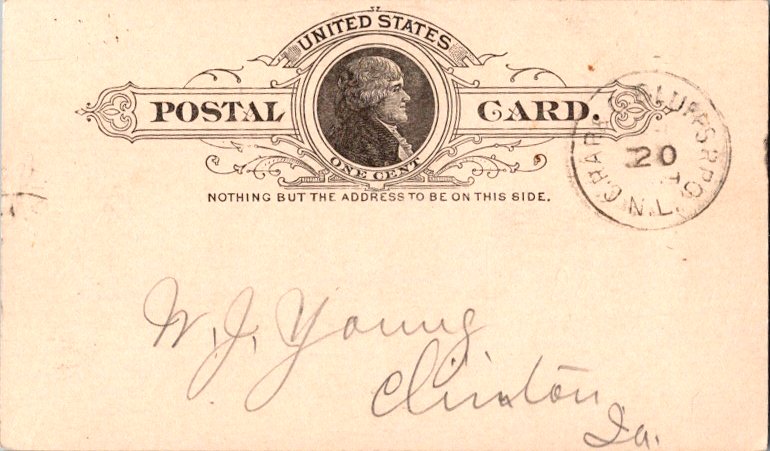 UNITED STATES
POSTAL CARD.
ONE CENT
NOTHING BUT THE ADDRESS TO BE ON THIS SIDE.
20
N.L.
W. J. Young
Clinton
Ia.